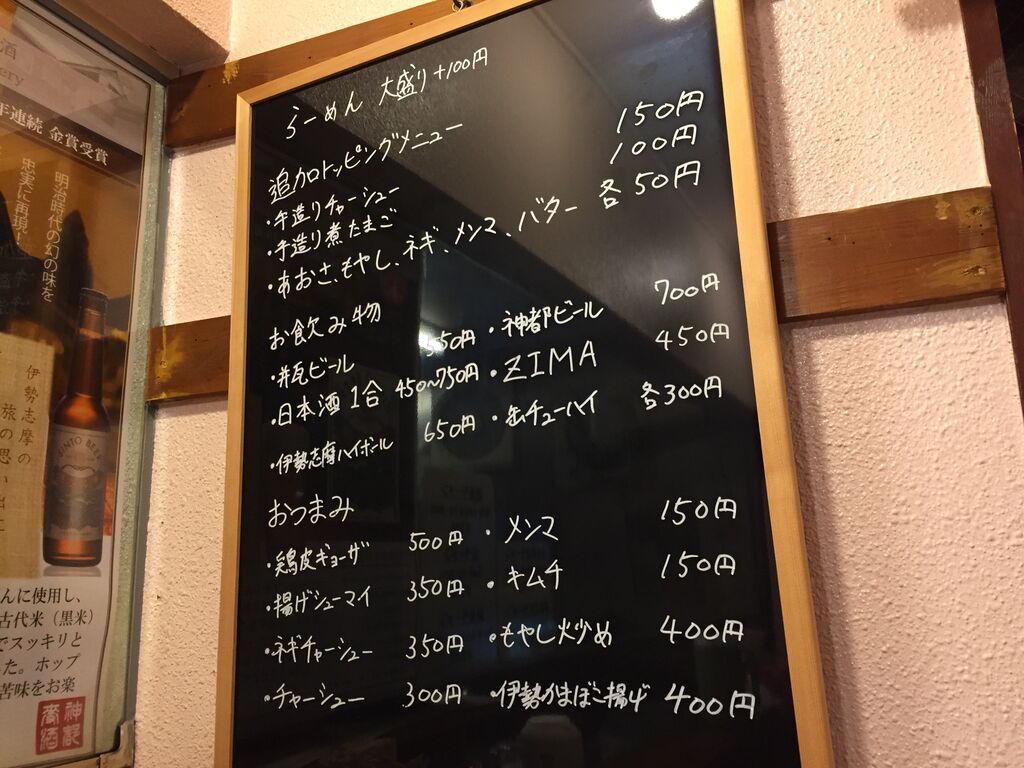 らーめん 大盛り +100円
追加トッピングメニュー
・手造りチャーシュー 150円
・手造り煮たまご 100円
・あおさ、もやし、ネギ、メンマ、バター 各50円
お飲み物
・瓶ビール 550円 ・神都ビール 700円
・日本酒 1合 450~750円 ・ZIMA 450円
・伊勢志摩ハイボール 650円 ・缶チューハイ 各300円
おつまみ
・鶏皮ギョーザ 500円 ・メンマ 150円
・揚げシューマイ 350円 ・キムチ 150円
・ネギチャーシュー 350円 ・もやし炒め 400円
・チャーシュー 300円 ・伊勢かまぼこ揚げ 400円
酒
ery
年連続 金賞受賞
明治時代の幻の味を
忠実に再現し
伊勢志摩の
旅の思い出に
BEER
んに使用し、
古代米(黒米)
でスッキリと
た。ホップ
苦味をお楽